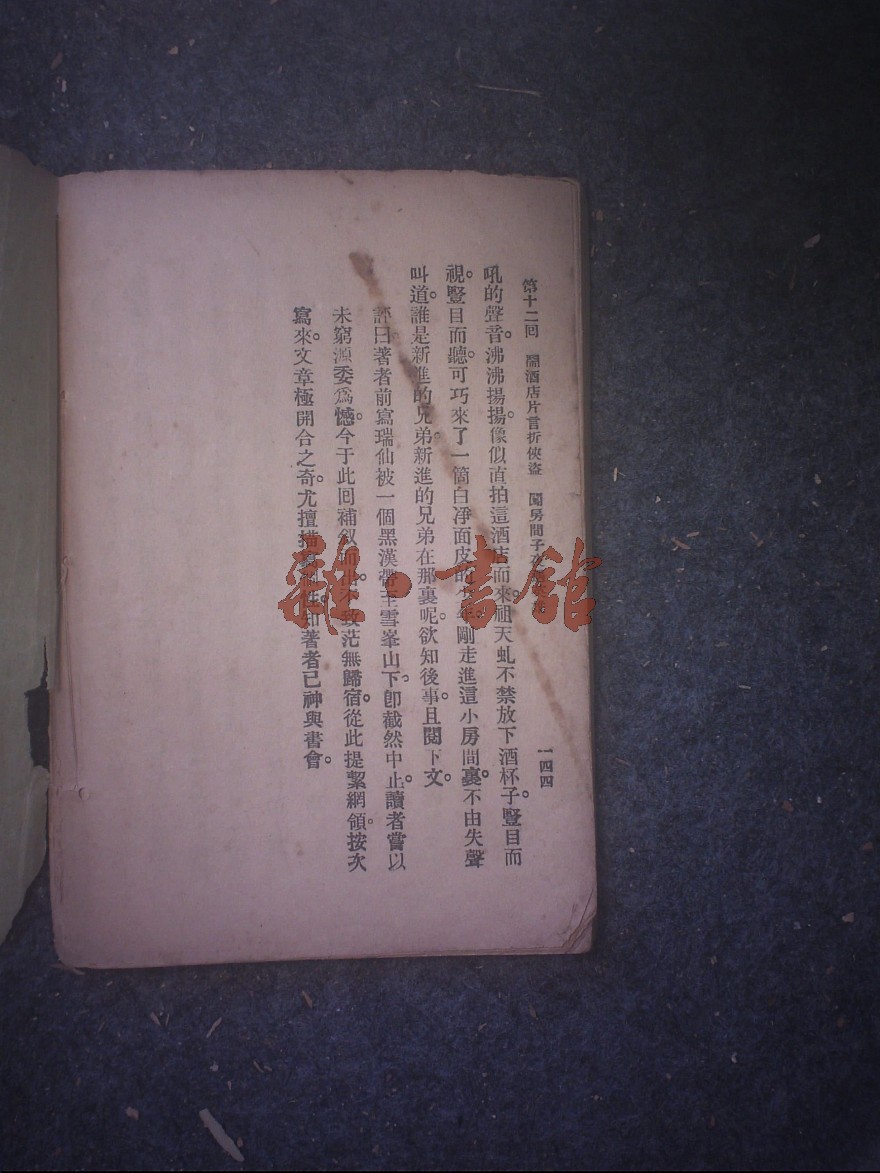 第十二回 鬧酒店片言折俠盜 闖房間子
一四四
吼的聲音。沸沸揚揚。像似直拍這酒店而來。祖天虬不禁放下酒杯子。豎目而
視。豎目而聽。可巧來了一箇白淨面皮的少年。剛走進這小房間裏。不由失聲
叫道。誰是新進的兄弟。新進的兄弟在那裏呢。欲知後事。且閱下文。
評曰著者前寫瑞仙被一個黑漢帶至雪峯山下。卽截然中止。讀者嘗以
未窮源委爲憾。今于此回補敘而出。不致茫無歸宿。從此提絜網領。按次
寫來。文章極開合之奇。尤擅描 性知著者已神與書會。
雜·書館